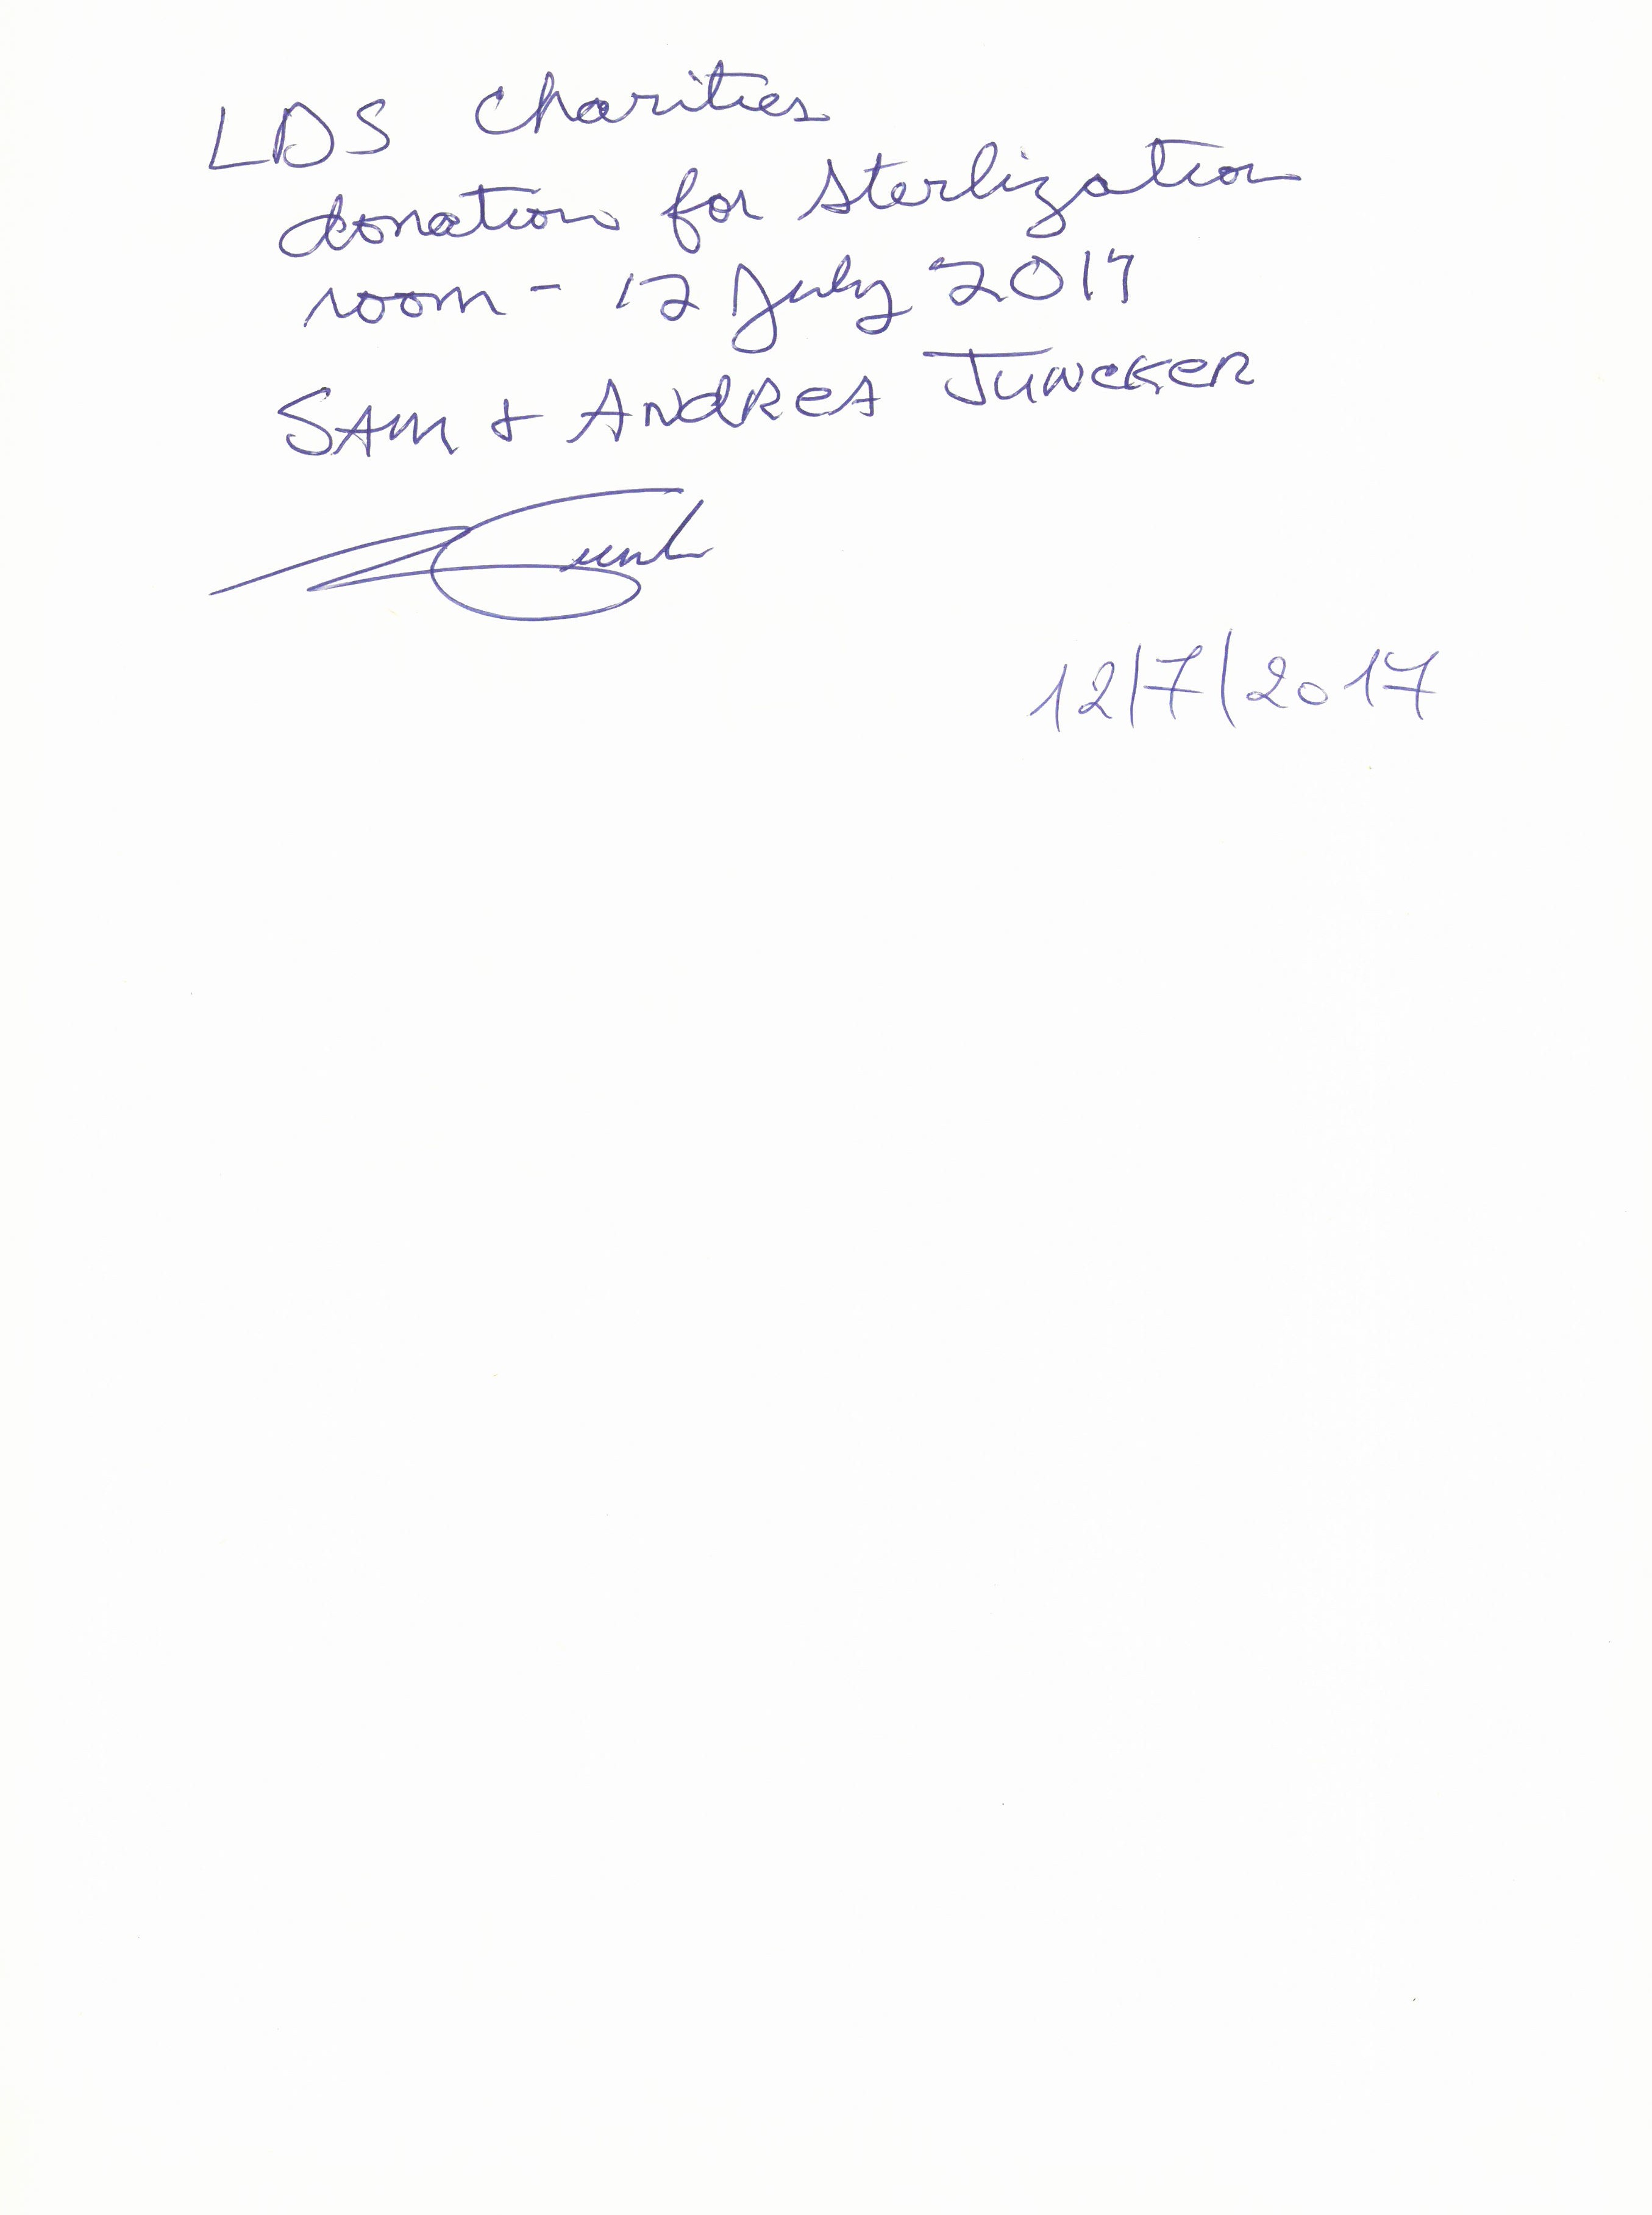 LDS Charities
donation for sterlization
room - 12 July 2017
SAM + ANDREA JUNCKER
12/7/2017